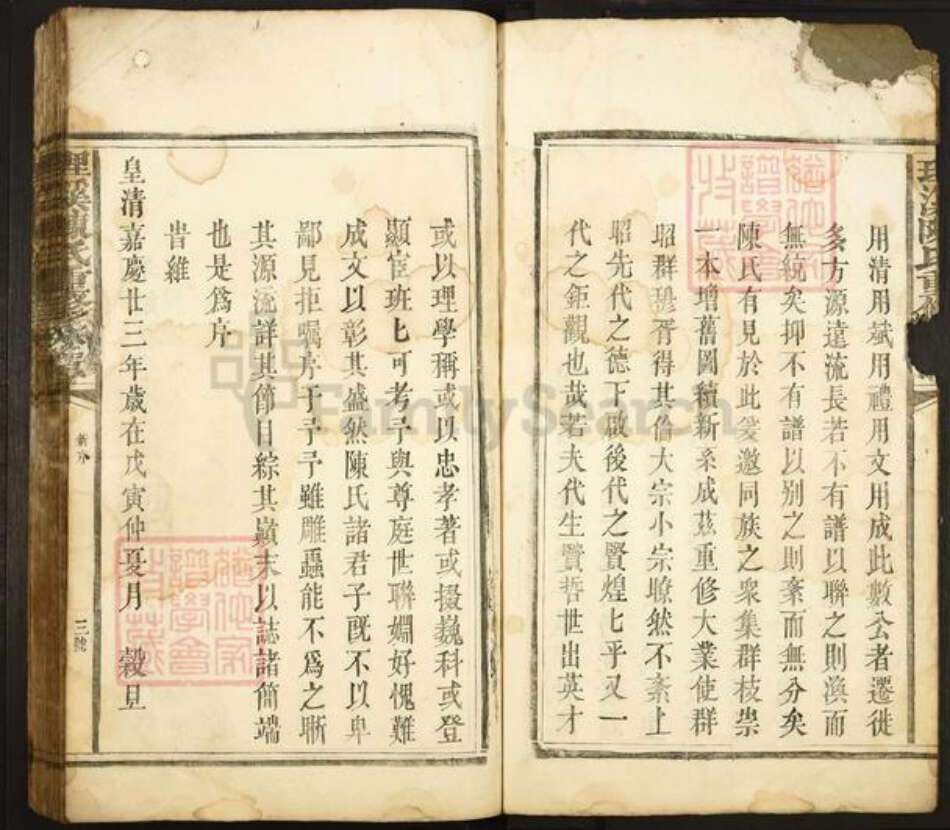 用清用斌用禮用文用成此數公者遷徙
多方源遠流長若不有譜以聯之則渙而
無統矣抑不有譜以別之則紊而無分矣
陳氏有見於此爰邀同族之眾集群枝崇
一本增舊圖積新系成茲重修大業使群
昭群穆胥得其倫大宗小宗瞭然不紊上
昭先代之德下啟後代之賢煌〻乎又一
代之鉅觀也哉若夫代生賢哲世出英才
或以理學稱或以忠孝著或掇巍科或登
顯宦班〻可考予與尊庭世聯婣好愧難
成文以彰其盛然陳氏諸君子既不以卑
鄙見拒囑序于予予雖雕蟲能不為之晰
其源流詳其節目綜其巔末以誌諸簡端
也是為序
旹維
皇清嘉慶廿三年歲在戊寅仲夏月 穀旦
新序
三號
FamilySearch